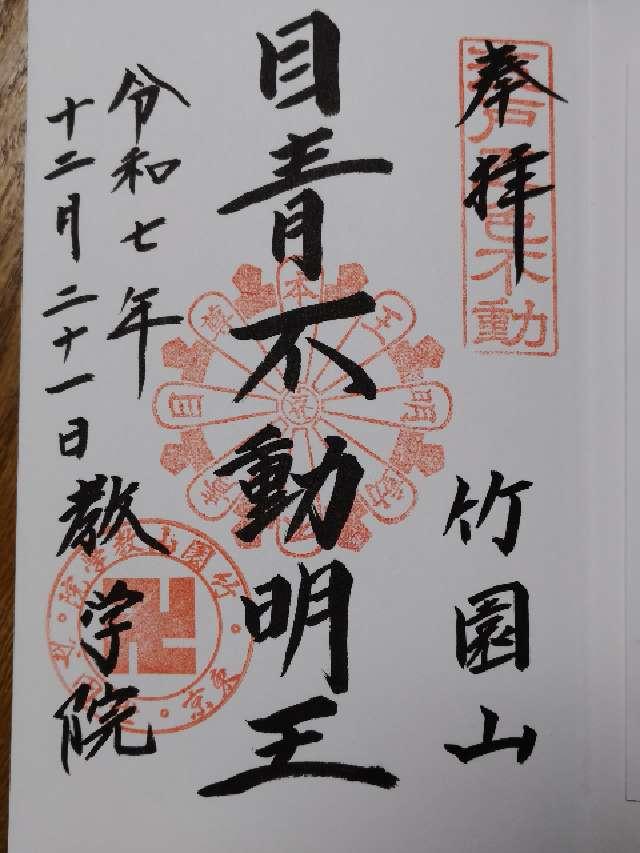 奉拝
不動
竹園山
目青不動明王
令和七年
十二月二十一日
教学院